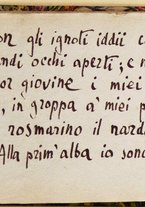 con gli ignoti iddii c
ndi occhi aperti; e n
or giovine i miei
, in groppa a' miei p
rosmarino il nard
Alla prim'alba io son